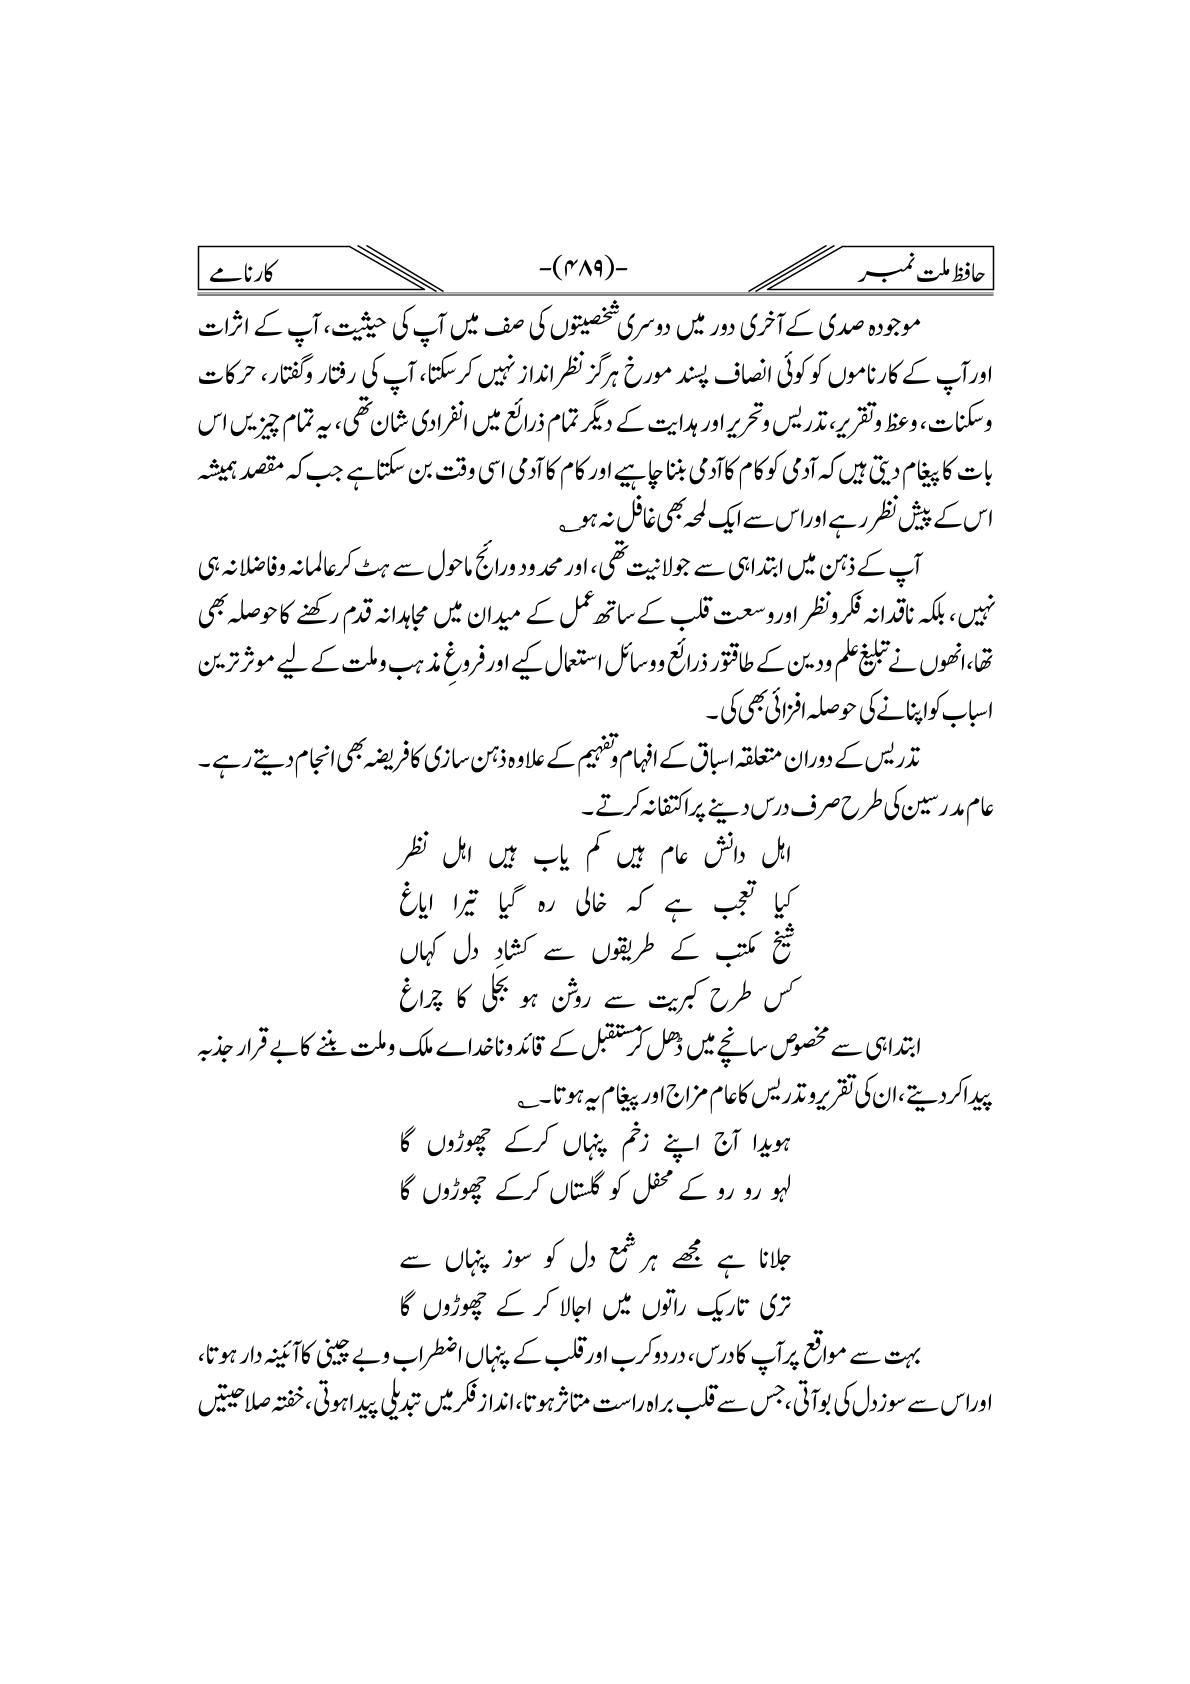 حافظ ملت نمبر -(۴۸۹)- کارنامے
موجودہ صدی کے آخری دور میں دوسری شخصیتوں کی صف میں آپ کی حیثیت، آپ کے اثرات
اور آپ کے کارناموں کو کوئی انصاف پسند مورخ ہرگز نظر انداز نہیں کرسکتا، آپ کی رفتار وگفتار، حرکات
وسکنات، وعظ وتقریر، تدریس وتحریر اور ہدایت کے دیگر تمام ذرائع میں انفرادی شان تھی، یہ تمام چیزیں اس
بات کا پیغام دیتی ہیں کہ آدمی کو کام کا آدمی بننا چاہیے اور کام کا آدمی اسی وقت بن سکتا ہے جب کہ مقصد ہمیشہ
اس کے پیش نظر رہے اور اس سے ایک لمحہ بھی غافل نہ ہو؂
آپ کے ذہن میں ابتدا ہی سے جولانیت تھی، اور محدود ورائج ماحول سے ہٹ کر عالمانہ وفاضلانہ ہی
نہیں، بلکہ ناقدانہ فکرونظر اور وسعت قلب کے ساتھ عمل کے میدان میں مجاہدانہ قدم رکھنے کا حوصلہ بھی
تھا، انھوں نے تبلیغ علم ودین کے طاقتور ذرائع ووسائل استعمال کیے اور فروغِ مذہب وملت کے لیے موثر ترین
اسباب کو اپنانے کی حوصلہ افزائی بھی کی۔
تدریس کے دوران متعلقہ اسباق کے افہام وتفہیم کے علاوہ ذہن سازی کا فریضہ بھی انجام دیتے رہے۔
عام مدرسین کی طرح صرف درس دینے پر اکتفا نہ کرتے۔
اہل دانش عام ہیں کم یاب ہیں اہل نظر
کیا تعجب ہے کہ خالی رہ گیا تیرا ایاغ
شیخ مکتب کے طریقوں سے کشادِ دل کہاں
کس طرح کبریت سے روشن ہو بجلی کا چراغ
ابتدا ہی سے مخصوص سانچے میں ڈھل کر مستقبل کے قائد وناخداے ملک وملت بننے کا بے قرار جذبہ
پیدا کر دیتے، ان کی تقریر وتدریس کا عام مزاج اور پیغام یہ ہوتا۔؂
ہویدا آج اپنے زخم پنہاں کرکے چھوڑوں گا
لہو رو رو کے محفل کو گلستاں کرکے چھوڑوں گا
جلانا ہے مجھے ہر شمع دل کو سوز پنہاں سے
تری تاریک راتوں میں اجالا کر کے چھوڑوں گا
بہت سے مواقع پر آپ کا درس، درد وکرب اور قلب کے پنہاں اضطراب وبے چینی کا آئینہ دار ہوتا،
اور اس سے سوز دل کی بو آتی، جس سے قلب براہ راست متاثر ہوتا، انداز فکر میں تبدیلی پیدا ہوتی، خفتہ صلاحیتیں